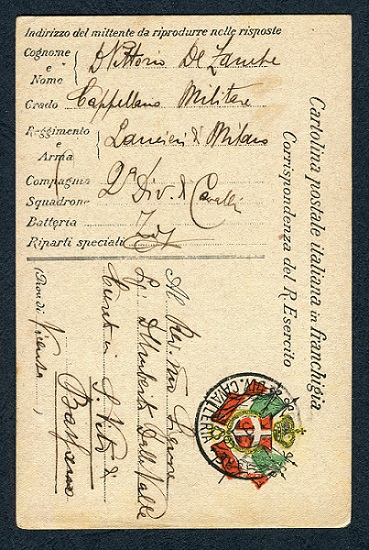 Indirizzo del mittente da riprodurre nelle risposte
Cognome e Nome { D Vittorio De Zanche
Grado Cappellano Militare
Reggimento e Arma { Lancieri di Milano
Compagnia
Squadrone 2ª Div. di Cavall
Batteria
Riparti speciali
Cartolina postale italiana in franchigia
Corrispondenza del R. Esercito
DIV. CAVALLERIA
Al Rev.mo Signore
Umberto Dalla Valle
Curato in S. Vito di
Bassano
Vicenza